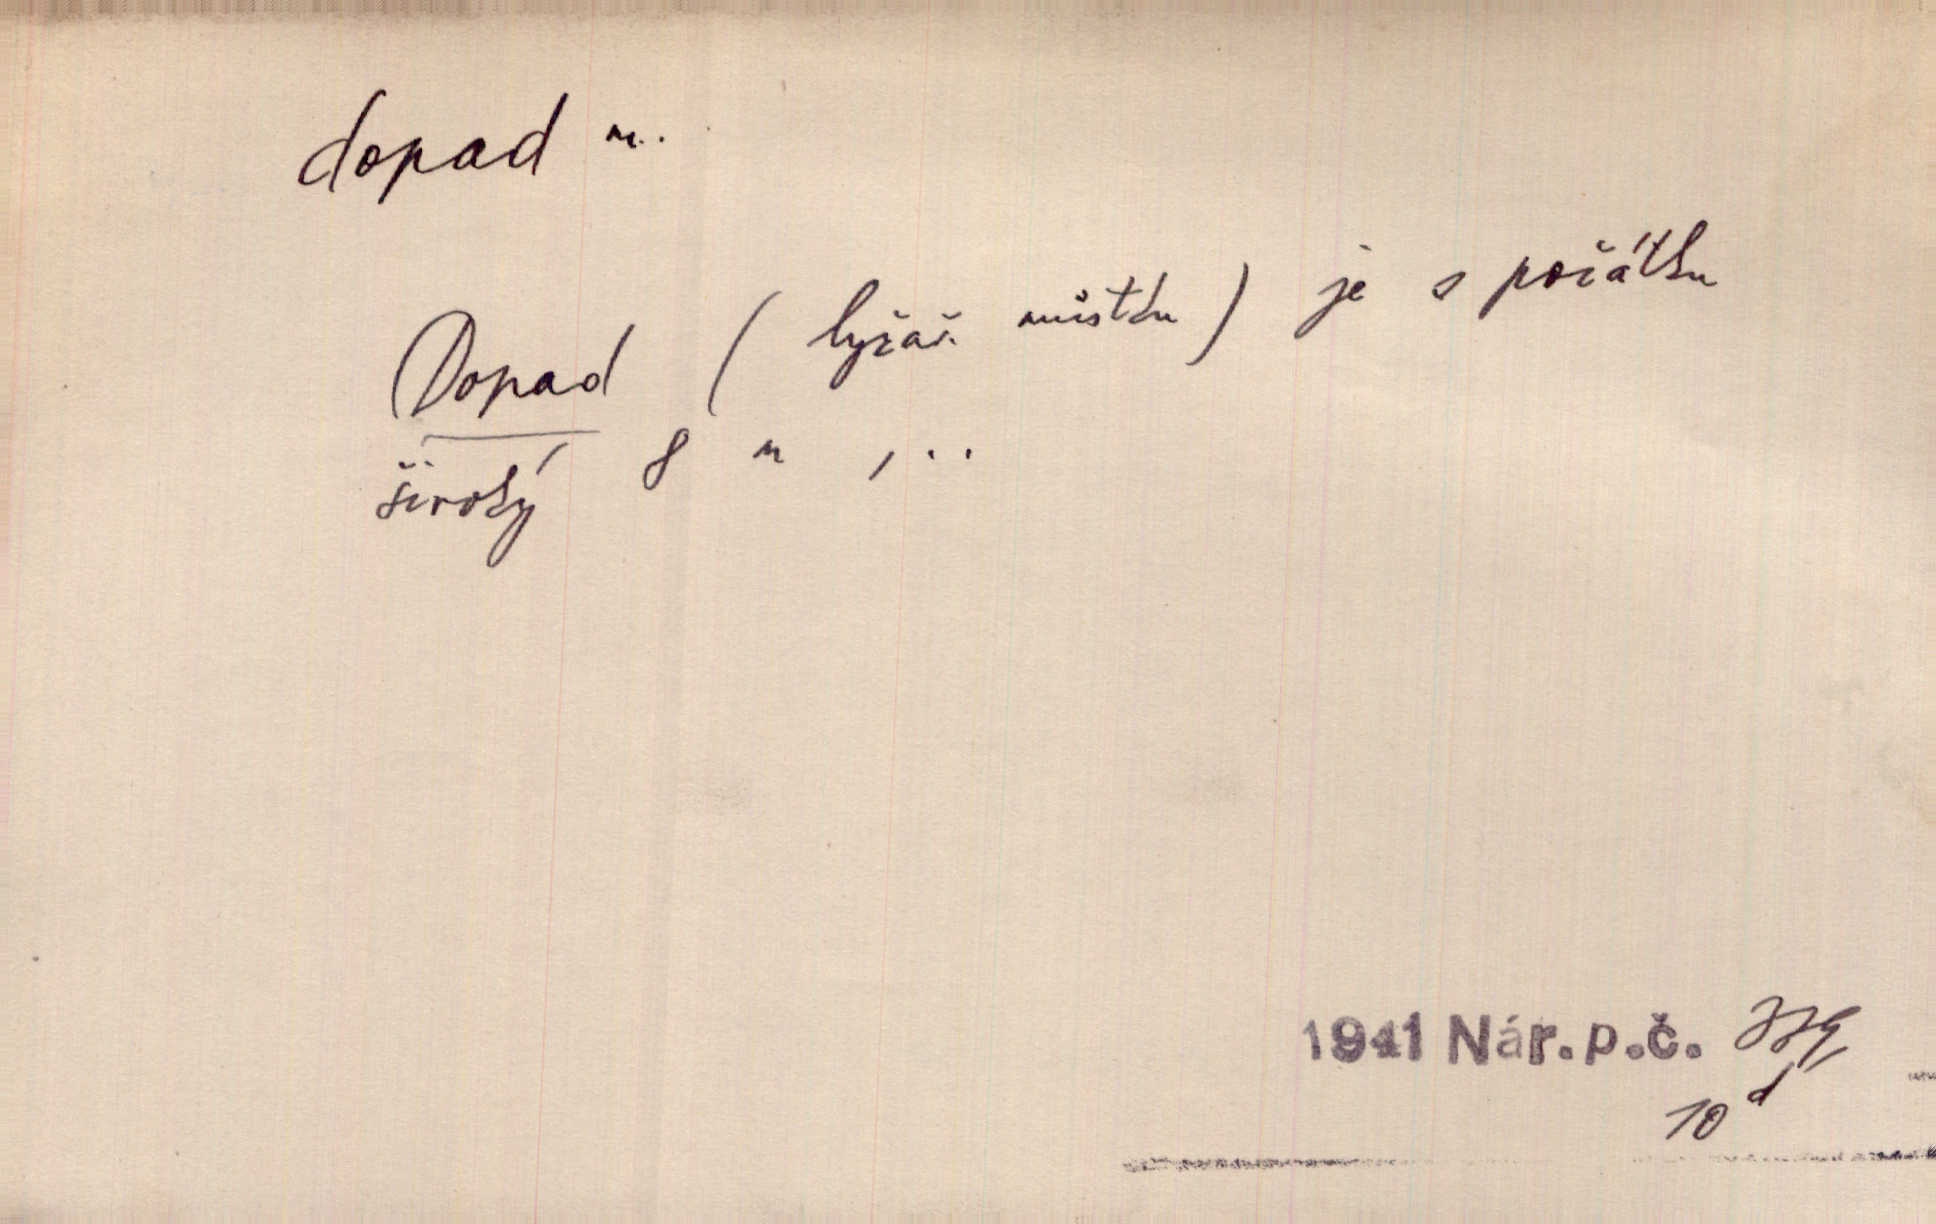 dopad m.
Dopad (lyžař. můstku) je s počátku
široký 8 m, ..
1941 Nár.p.č.
10 d